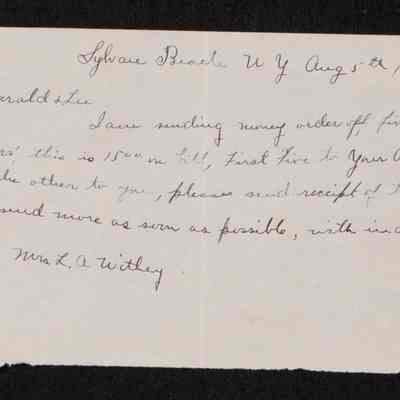 Sylvan Beach N Y Aug 5th
arald & Lee
I am sending money order of, five
this is 15⁰⁰ on bill, First Five to Your
the other to you, please send receipt of
send more as soon as possible, with
Mrs L. A Withey